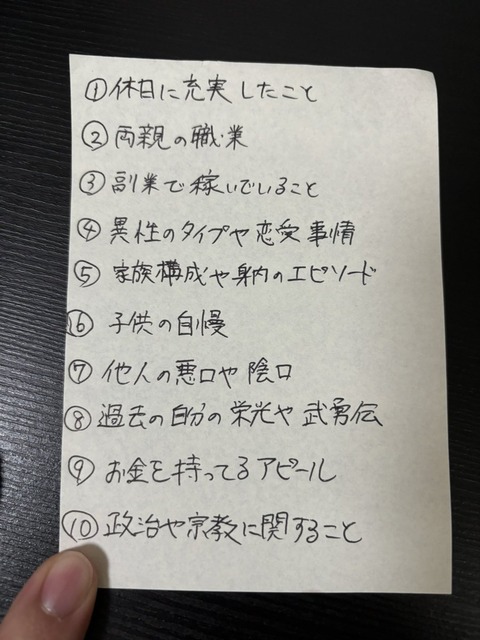 ①休日に充実したこと
②両親の職業
③副業で稼いでいること
④異性のタイプや恋愛事情
⑤家族構成や身内のエピソード
⑥子供の自慢
⑦他人の悪口や陰口
⑧過去の自分の栄光や武勇伝
⑨お金を持ってるアピール
⑩政治や宗教に関すること